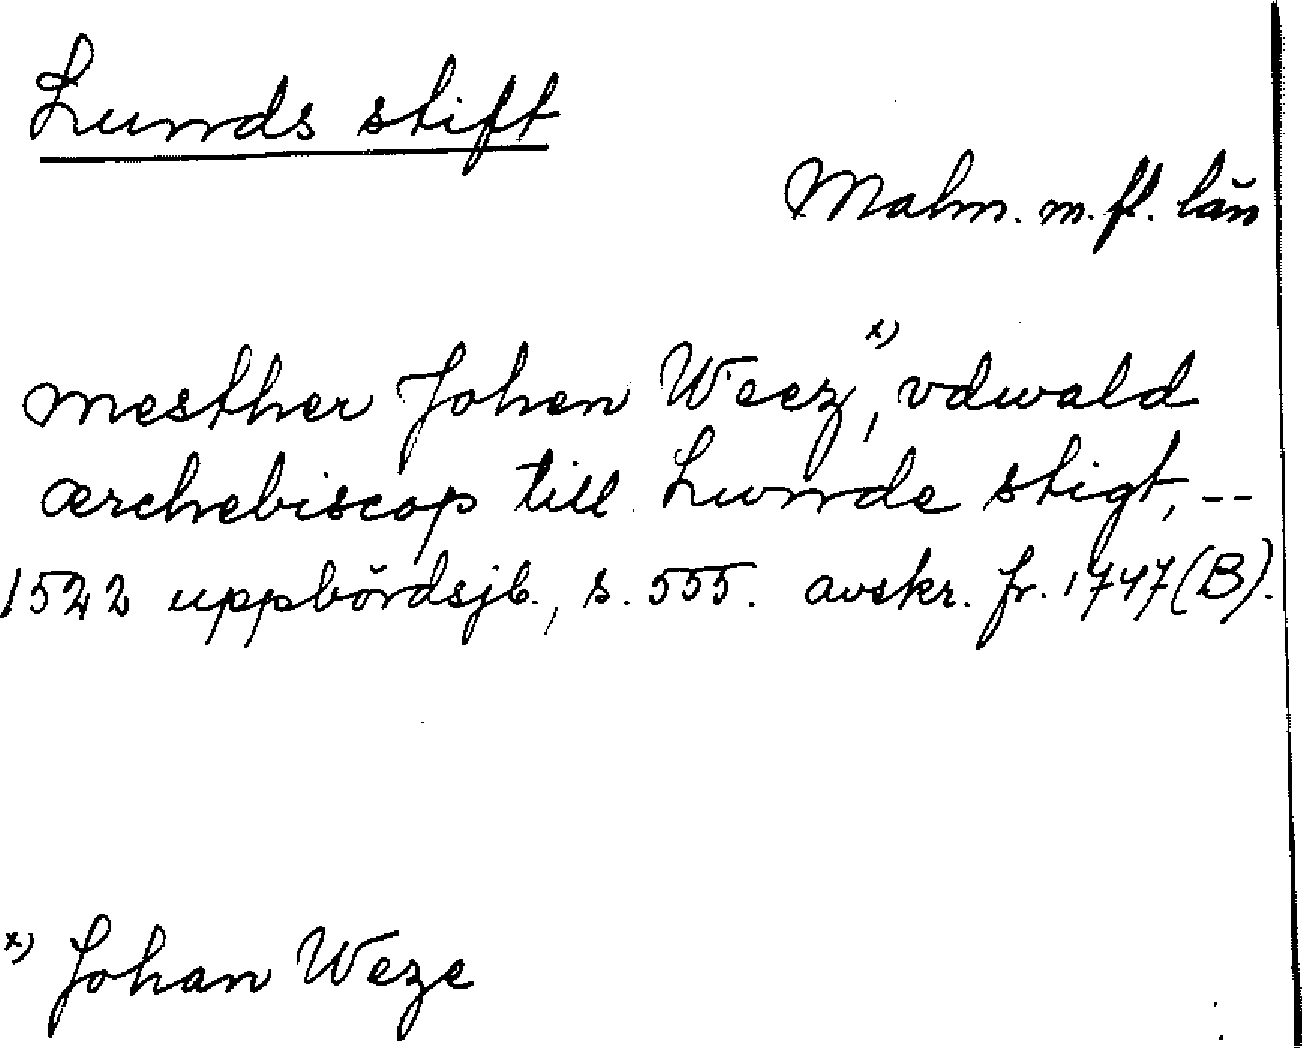 Lunds stift
Malm. m. fl. län
mesther Johen Weez x), vdwald
ærchebiscop till Lunde stigt, --
1522 uppbördsjb., s. 555. avskr. fr. 1747 (B).
x) Johan Weze